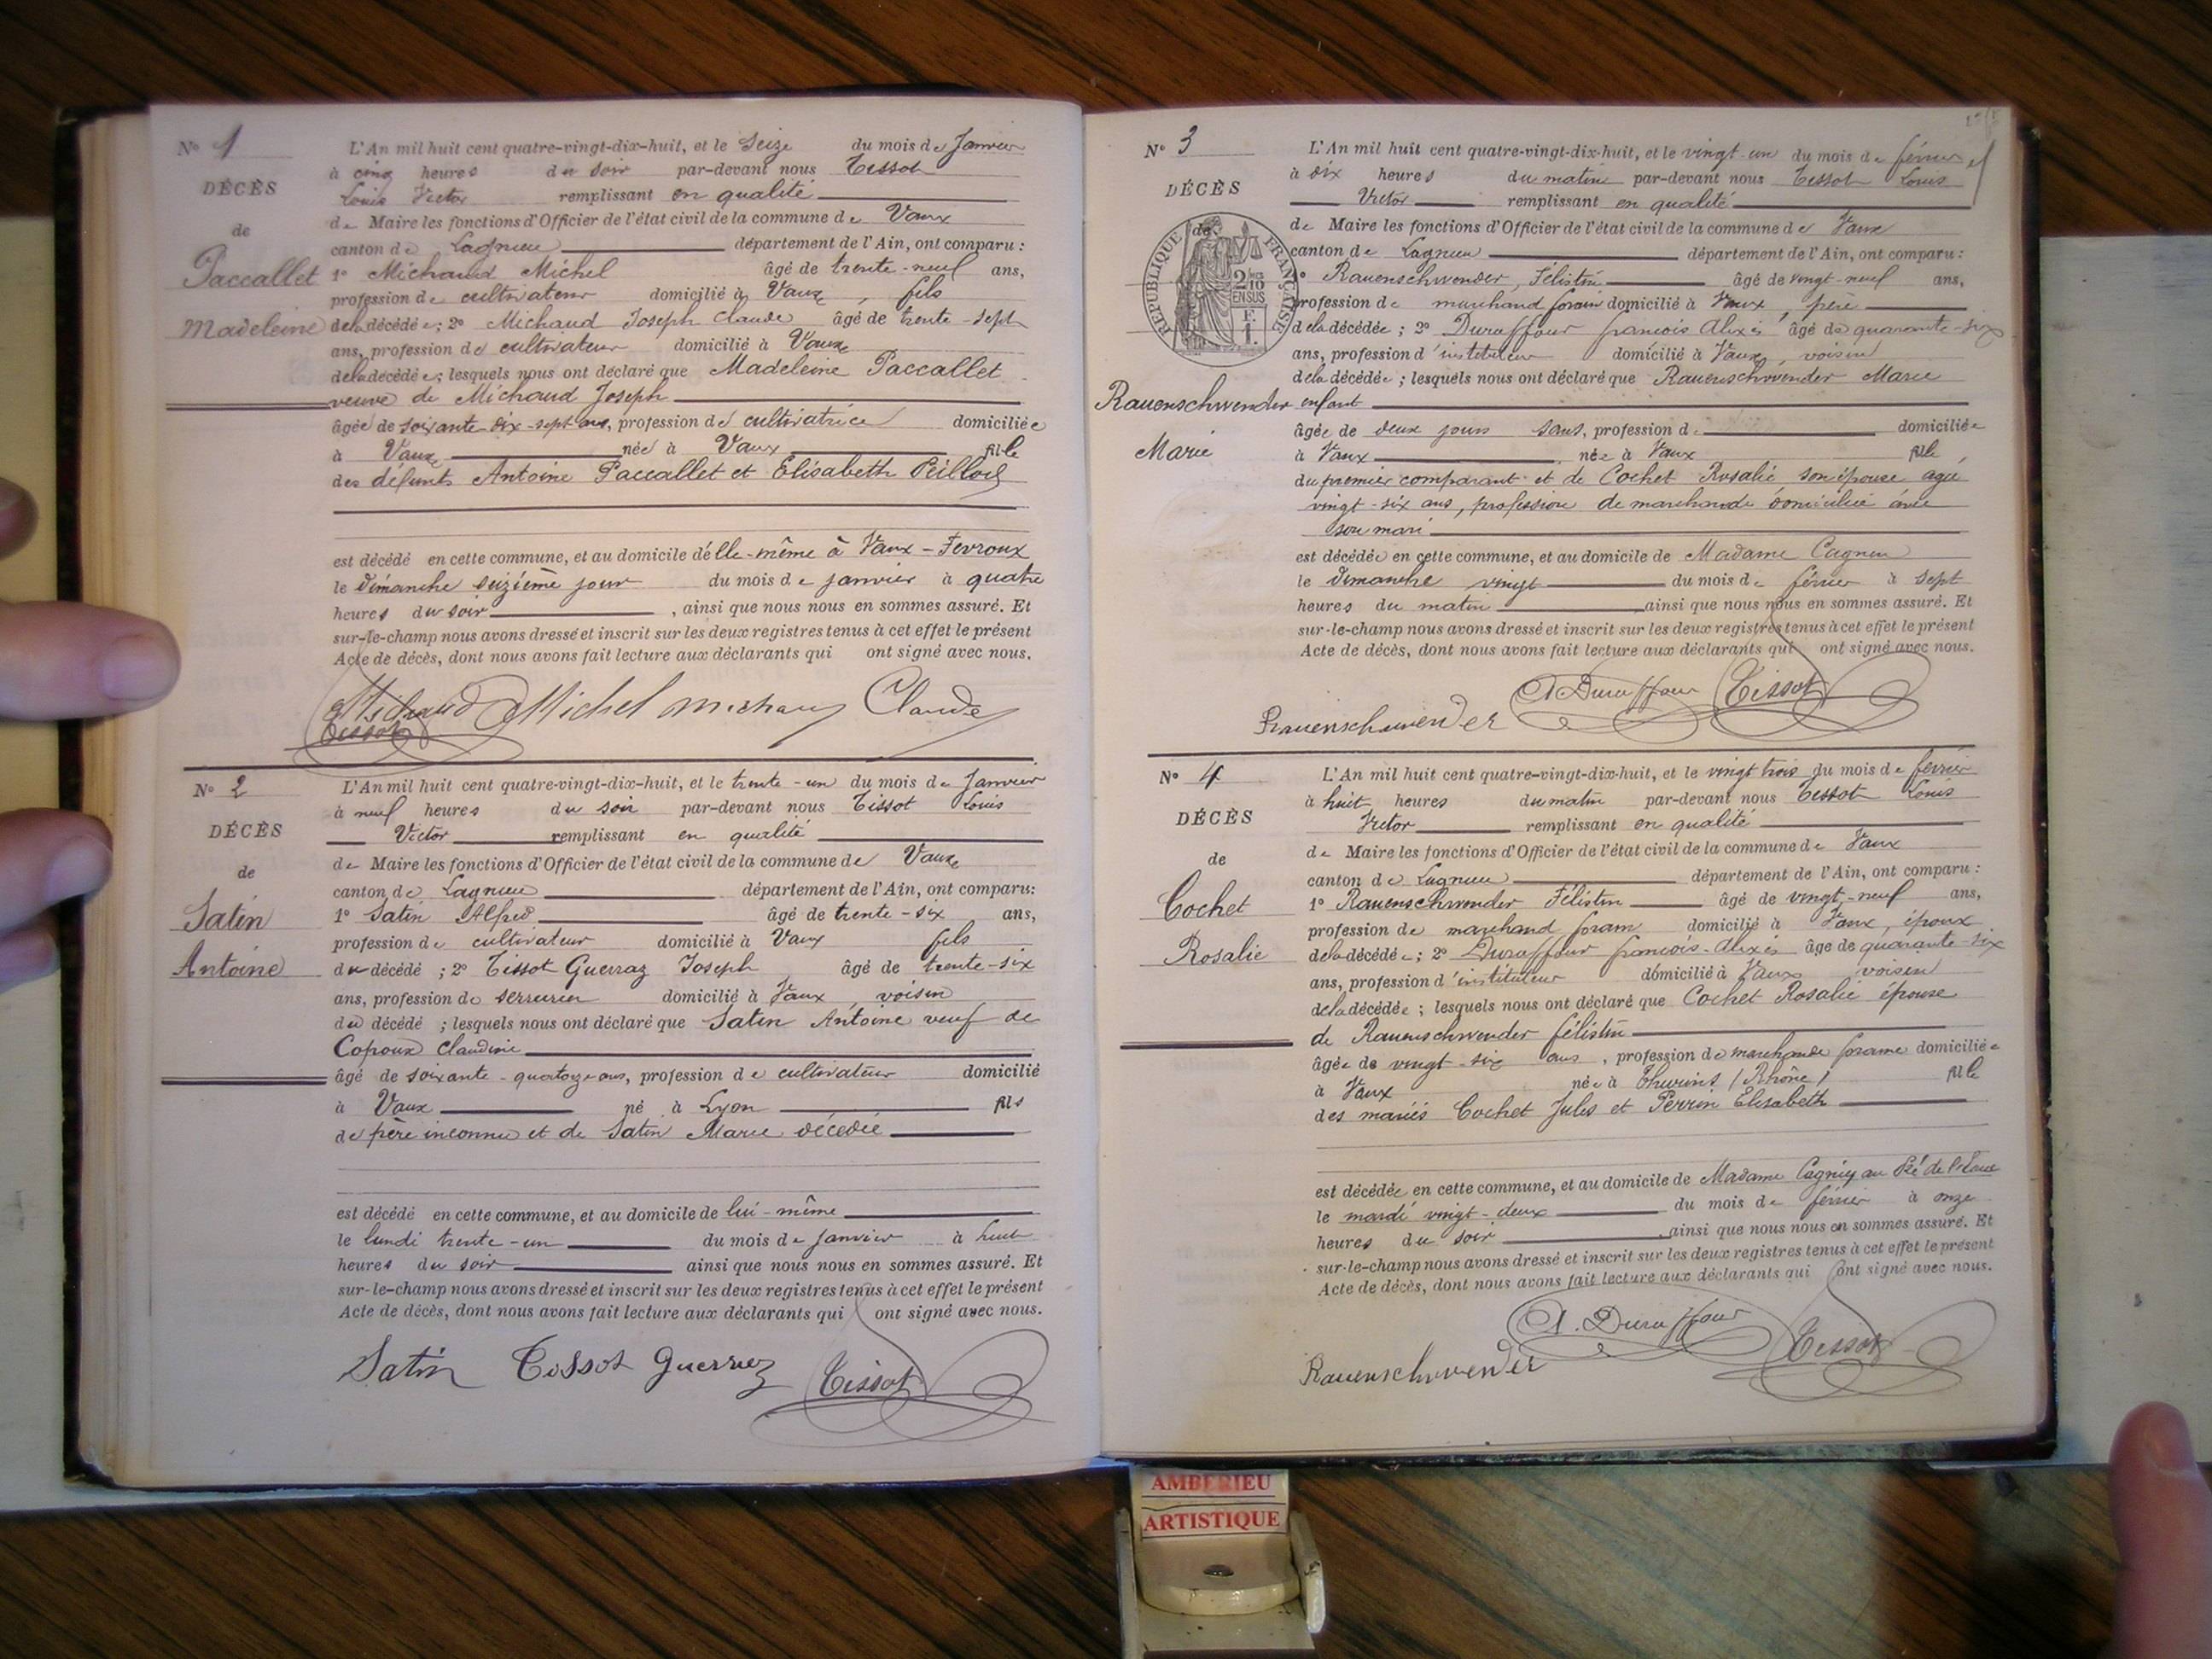 N° 1
DÉCÈS
de
Paccallet
Madeleine
L'An mil huit cent quatre-vingt-dix-huit, et le Seize du mois de Janvier
à cinq heures du soir par-devant nous Tissot
Louis Victor remplissant en qualité
de Maire les fonctions d'Officier de l'état civil de la commune de Vaux
canton de Lagnieu département de l'Ain, ont comparu :
1° Michaud Michel âgé de trente-neuf ans,
profession de cultivateur domicilié à Vaux, fils
de la décédée ; 2° Michaud Joseph Claude âgé de trente-sept
ans, profession de cultivateur domicilié à Vaux
de la décédée ; lesquels nous ont déclaré que Madeleine Paccallet
veuve de Michaud Joseph
âgée de soixante-dix-sept ans, profession de cultivatrice domiciliée
à Vaux née à Vaux fille
des défunts Antoine Paccallet et Elisabeth
est décédé en cette commune, et au domicile d'elle-même à Vaux-Fevroux
le dimanche seizième jour du mois de janvier à quatre
heures du soir, ainsi que nous nous en sommes assuré. Et
sur-le-champ nous avons dressé et inscrit sur les deux registres tenus à cet effet le présent
Acte de décès, dont nous avons fait lecture aux déclarants qui ont signé avec nous.
Michaud Michel Michaud Claude
Tissot
N° 2
DÉCÈS
de
Satin
Antoine
L'An mil huit cent quatre-vingt-dix-huit, et le trente-un du mois de Janvier
à neuf heures du soir par-devant nous Tissot Louis
Victor remplissant en qualité
de Maire les fonctions d'Officier de l'état civil de la commune de Vaux
canton de Lagnieu département de l'Ain, ont comparu :
1° Satin Alfred âgé de trente-six ans,
profession de cultivateur domicilié à Vaux fils
du décédé ; 2° Tissot Guerraz Joseph âgé de trente-six
ans, profession de serrurier domicilié à Vaux, voisin
du décédé ; lesquels nous ont déclaré que Satin Antoine veuf de
Copoux Claudine
âgé de soixante-quatorze ans, profession de cultivateur domicilié
à Vaux né à Lyon fils
de père inconnu et de Satin Marie décédée
est décédé en cette commune, et au domicile de lui-même
le lundi trente-un du mois de janvier à huit
heures du soir ainsi que nous nous en sommes assuré. Et
sur-le-champ nous avons dressé et inscrit sur les deux registres tenus à cet effet le présent
Acte de décès, dont nous avons fait lecture aux déclarants qui ont signé avec nous.
Satin Tissot Guerraz Tissot
N° 3
DÉCÈS
de
RÉPUBLIQUE FRANÇAISE
Rauenschwender
Marie
L'An mil huit cent quatre-vingt-dix-huit, et le vingt-un du mois de février
à dix heures du matin par-devant nous Tissot Louis
Victor remplissant en qualité
de Maire les fonctions d'Officier de l'état civil de la commune de Vaux
canton de Lagnieu département de l'Ain, ont comparu :
1° Rauenschwender, Félistin âgé de vingt-neuf ans,
profession de marchand forain domicilié à Vaux, père
de la décédée ; 2° Duraffour françois Alexis âgé de quarante-six
ans, profession d'instituteur domicilié à Vaux, voisin
de la décédée ; lesquels nous ont déclaré que Rauenschwender Marie
enfant
âgée de deux jours sans, profession d domiciliée
à Vaux née à Vaux fille
du premier comparant et de Cochet Rosalie son épouse agée
vingt-six ans, profession de marchande domiciliée avec
son mari
est décédée en cette commune, et au domicile de Madame Cagneu
le dimanche vingt du mois de février à sept
heures du matin ainsi que nous nous en sommes assuré. Et
sur-le-champ nous avons dressé et inscrit sur les deux registres tenus à cet effet le présent
Acte de décès, dont nous avons fait lecture aux déclarants qui ont signé avec nous.
Rauenschwender A. Duraffour Tissot
N° 4
DÉCÈS
de
Cochet
Rosalie
L'An mil huit cent quatre-vingt-dix-huit, et le vingt trois du mois de février
à huit heures du matin par-devant nous Tissot Louis
Victor remplissant en qualité
de Maire les fonctions d'Officier de l'état civil de la commune de Vaux
canton de Lagnieu département de l'Ain, ont comparu :
1° Rauenschwender Félistin âgé de vingt-neuf ans,
profession de marchand forain domicilié à Vaux, époux
de la décédée ; 2° Duraffour françois-Alexis âgé de quarante-six
ans, profession d'instituteur domicilié à Vaux voisin
de la décédée ; lesquels nous ont déclaré que Cochet Rosalie épouse
de Rauenschwender félistin
âgée de vingt-six ans, profession de marchande foraine domiciliée
à Vaux née à Thurins (Rhône) fille
des mariés Cochet Jules et Perrin Elisabeth
est décédée en cette commune, et au domicile de Madame au
le mardi vingt-deux du mois de février à onze
heures du soir, ainsi que nous nous en sommes assuré. Et
sur-le-champ nous avons dressé et inscrit sur les deux registres tenus à cet effet le présent
Acte de décès, dont nous avons fait lecture aux déclarants qui ont signé avec nous.
Rauenschwender A. Duraffour Tissot
AMBERIEU
ARTISTIQUE